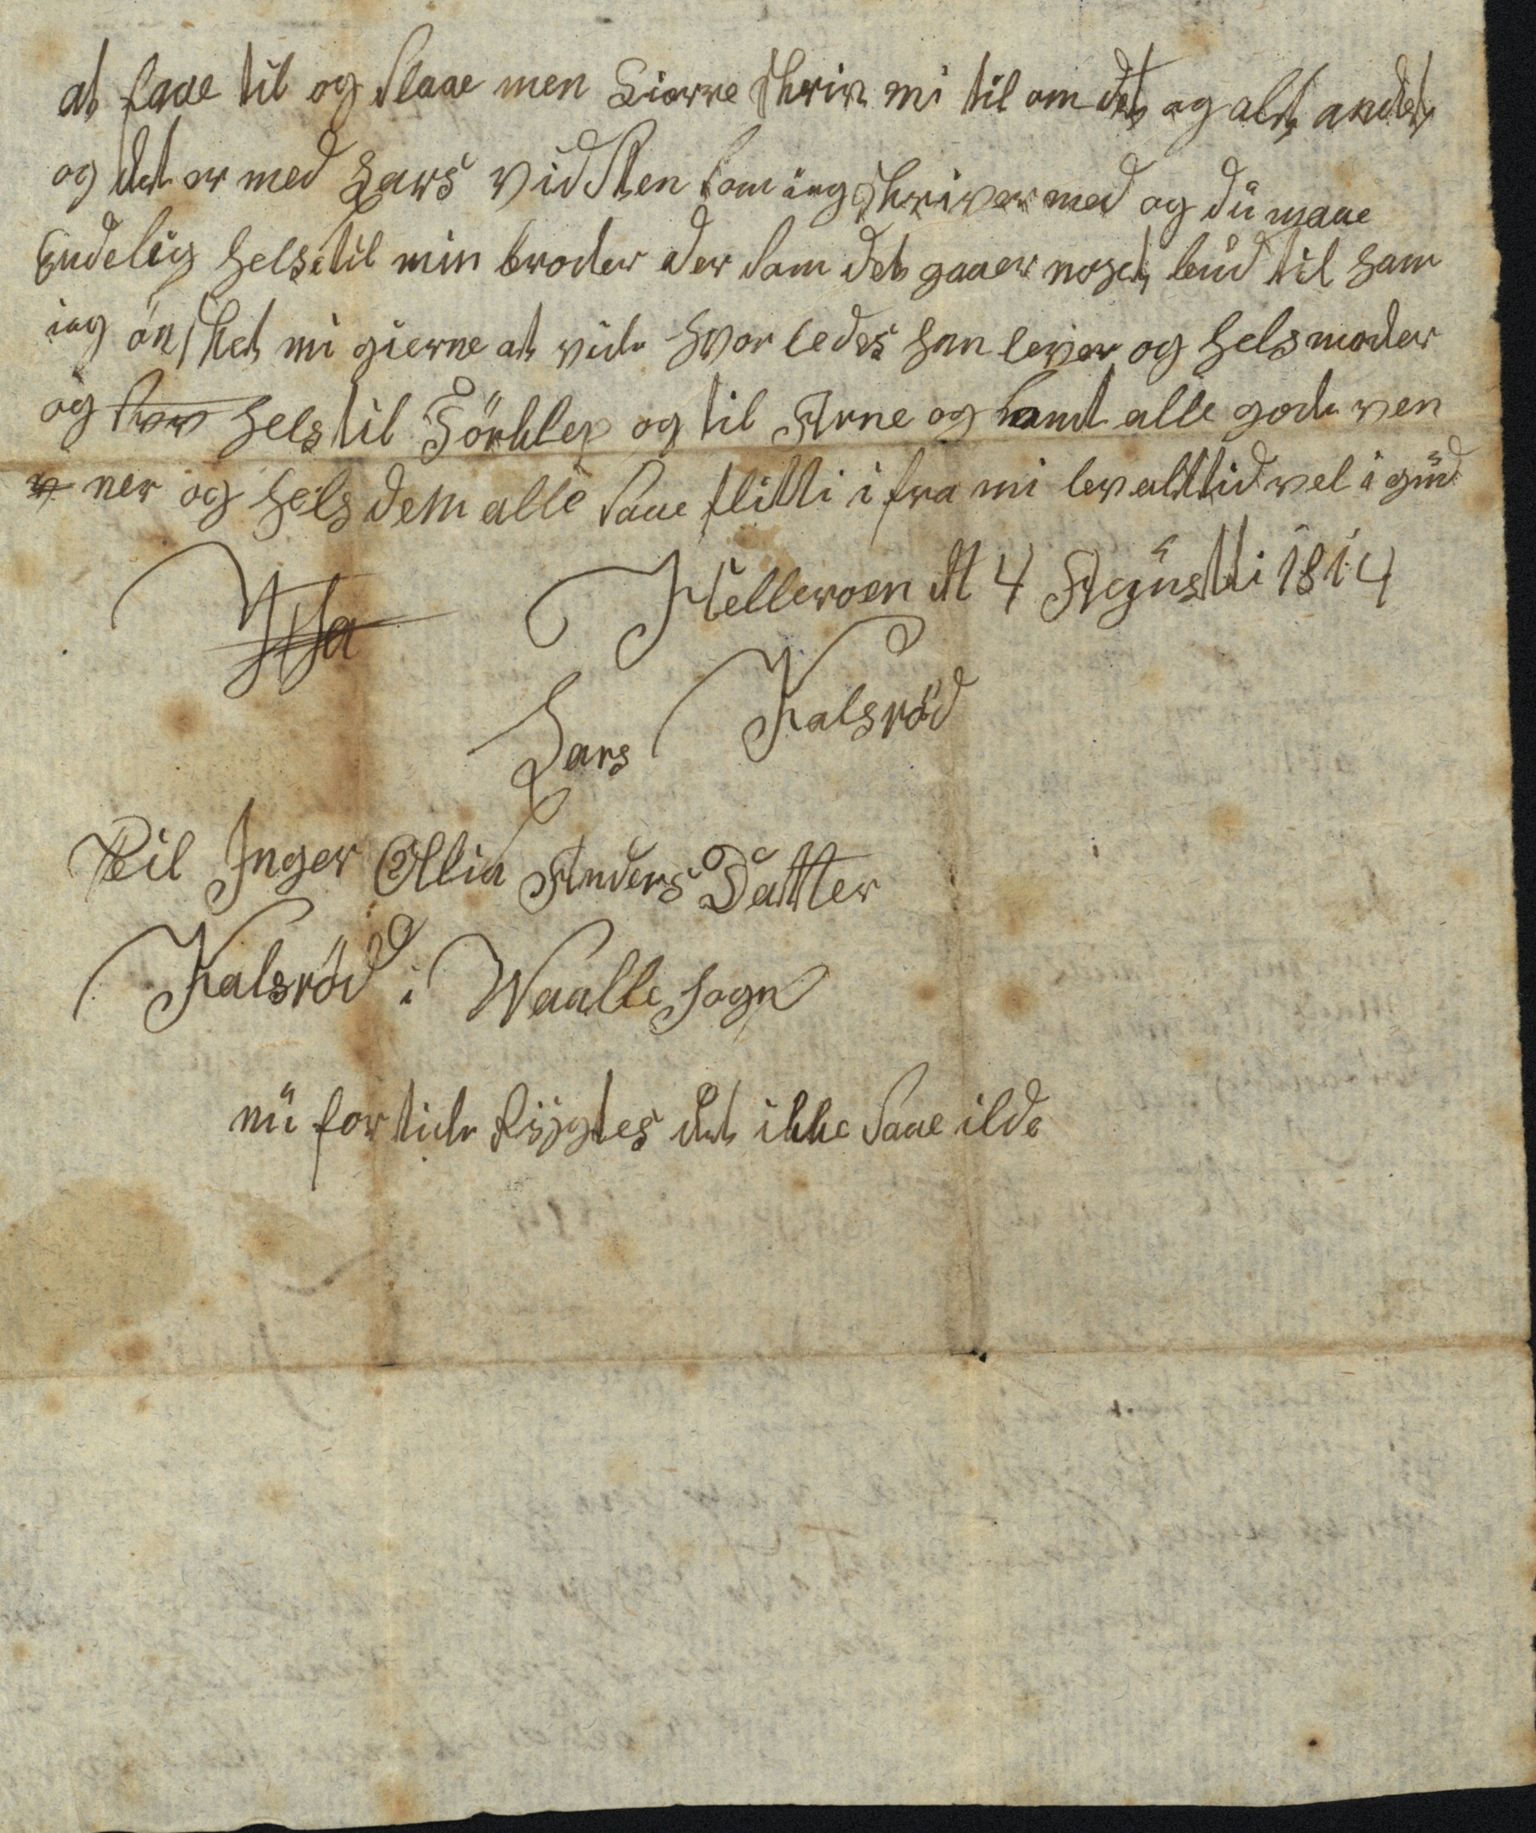 at faae til og Slaae men Kiærre skriv mi til om det og alt andet
og det er med Lars vidsten som ieg skriver med og dü maae
Endelig helse til min broder der som det gaaer noget büd til ham
ieg ønsket mi gierne at vide hvor ledes han lever og hels moder
og hels til Törkler og til Arne og samt alle gode ven
ner og hels dem alle saae flitti i fra mi lev alttid vel i güd
Helleroen dt 4 Agüstti 1814
Lars Kalsröd
Til Inger Ollia Anders Datter
Kalsröd i Waalle sogn
nü for tide Rÿgtes det ikke saae ilde